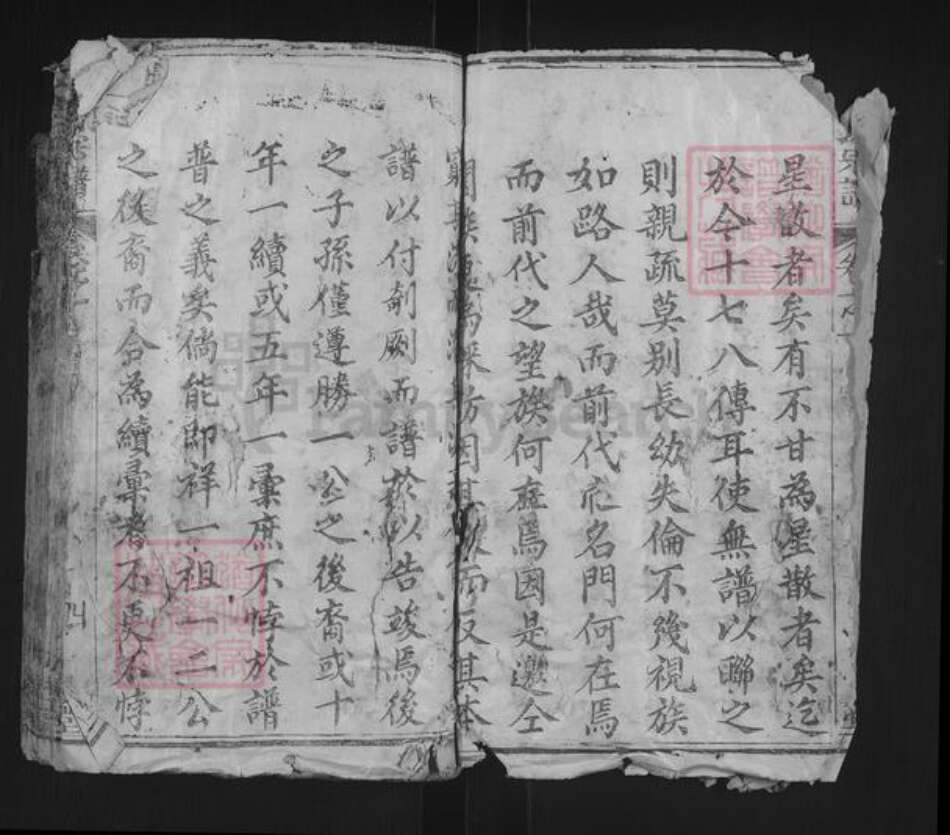 星散者矣有不甘為星散者矣迄
於今十七八傳耳使無譜以聯之
則親疏莫别長幼失倫不幾視族
如路人哉而前代之名門何在焉
而前代之望族何在焉因是邀仝
因其而反其本
譜以付剞劂而譜於以告竣焉後
之子孫僅遵勝一公之後裔或十
年一續或五年一彙庶不悖於譜
普之義矣倘能即祥一祖一二公
之後裔而合為續彙者不更不悖
FamilySearch